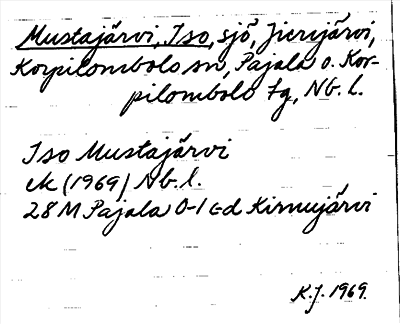 Mustajärvi, Iso, sjö, Jierijärvi,
Korpilombolo sn, Pajala o. Kor-
pilombolo tg, Nb. l.
Iso Mustajärvi
ek (1969) Nb. l.
28 M Pajala 0-1 c-d Kirnujärvi
K.J. 1969.